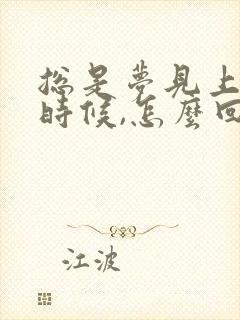 总是夢見上
時候,怎麼回
江波